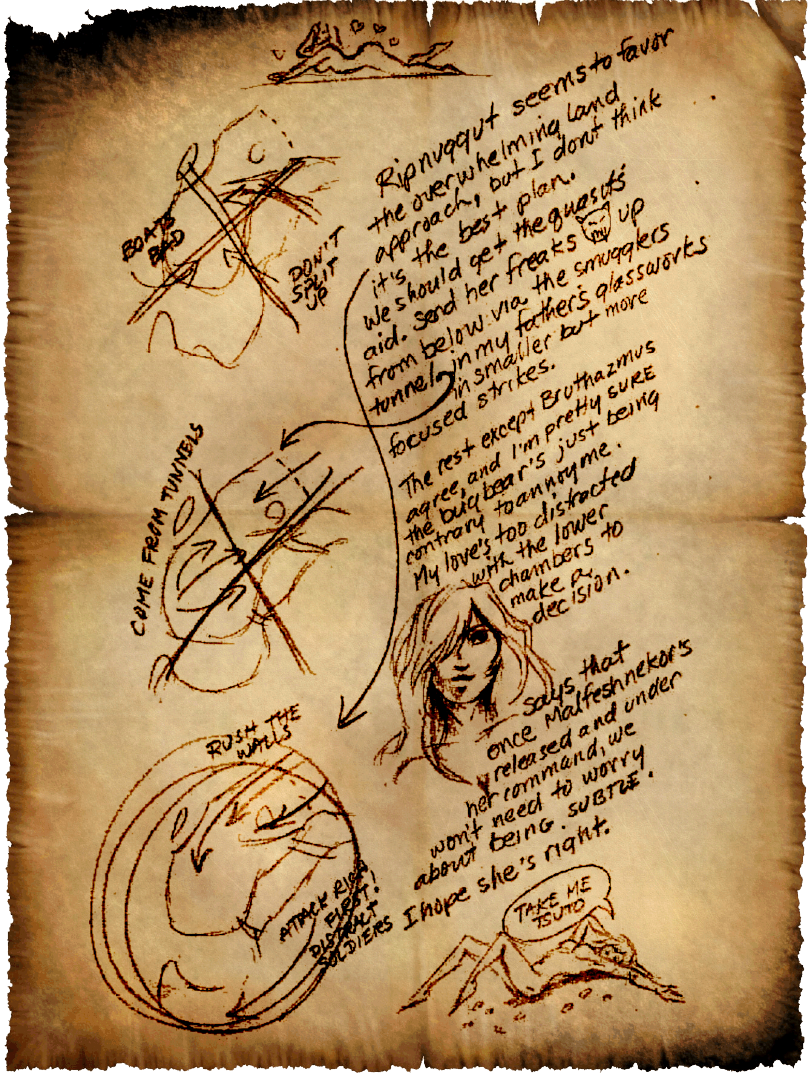 Ripnuggut seems to favor
the overwhelming land
approach, but I dont think
it's the best plan.
We should get the quasits'
aid. Send her freaks up
from below via the smugglers
tunnel in my father's glassworks
in smaller but more
focused strikes.
The rest except Bruthazmus
agree, and I'm pretty SURE
the bugbear's just being
contrary to annoy me.
My love's too distracted
with the lower
chambers to
make a
decision.
Says that
once Malfeshnekor's
released and under
her command, we
won't need to worry
about being SUBTLE.
I hope she's right.
BOATS
BAD
DON'T
SPLIT
UP
COME FROM TUNNELS
RUSH THE
WALLS
ATTACK RICH
FIRST!
DISTRACT
SOLDIERS
TAKE ME
TSUTO